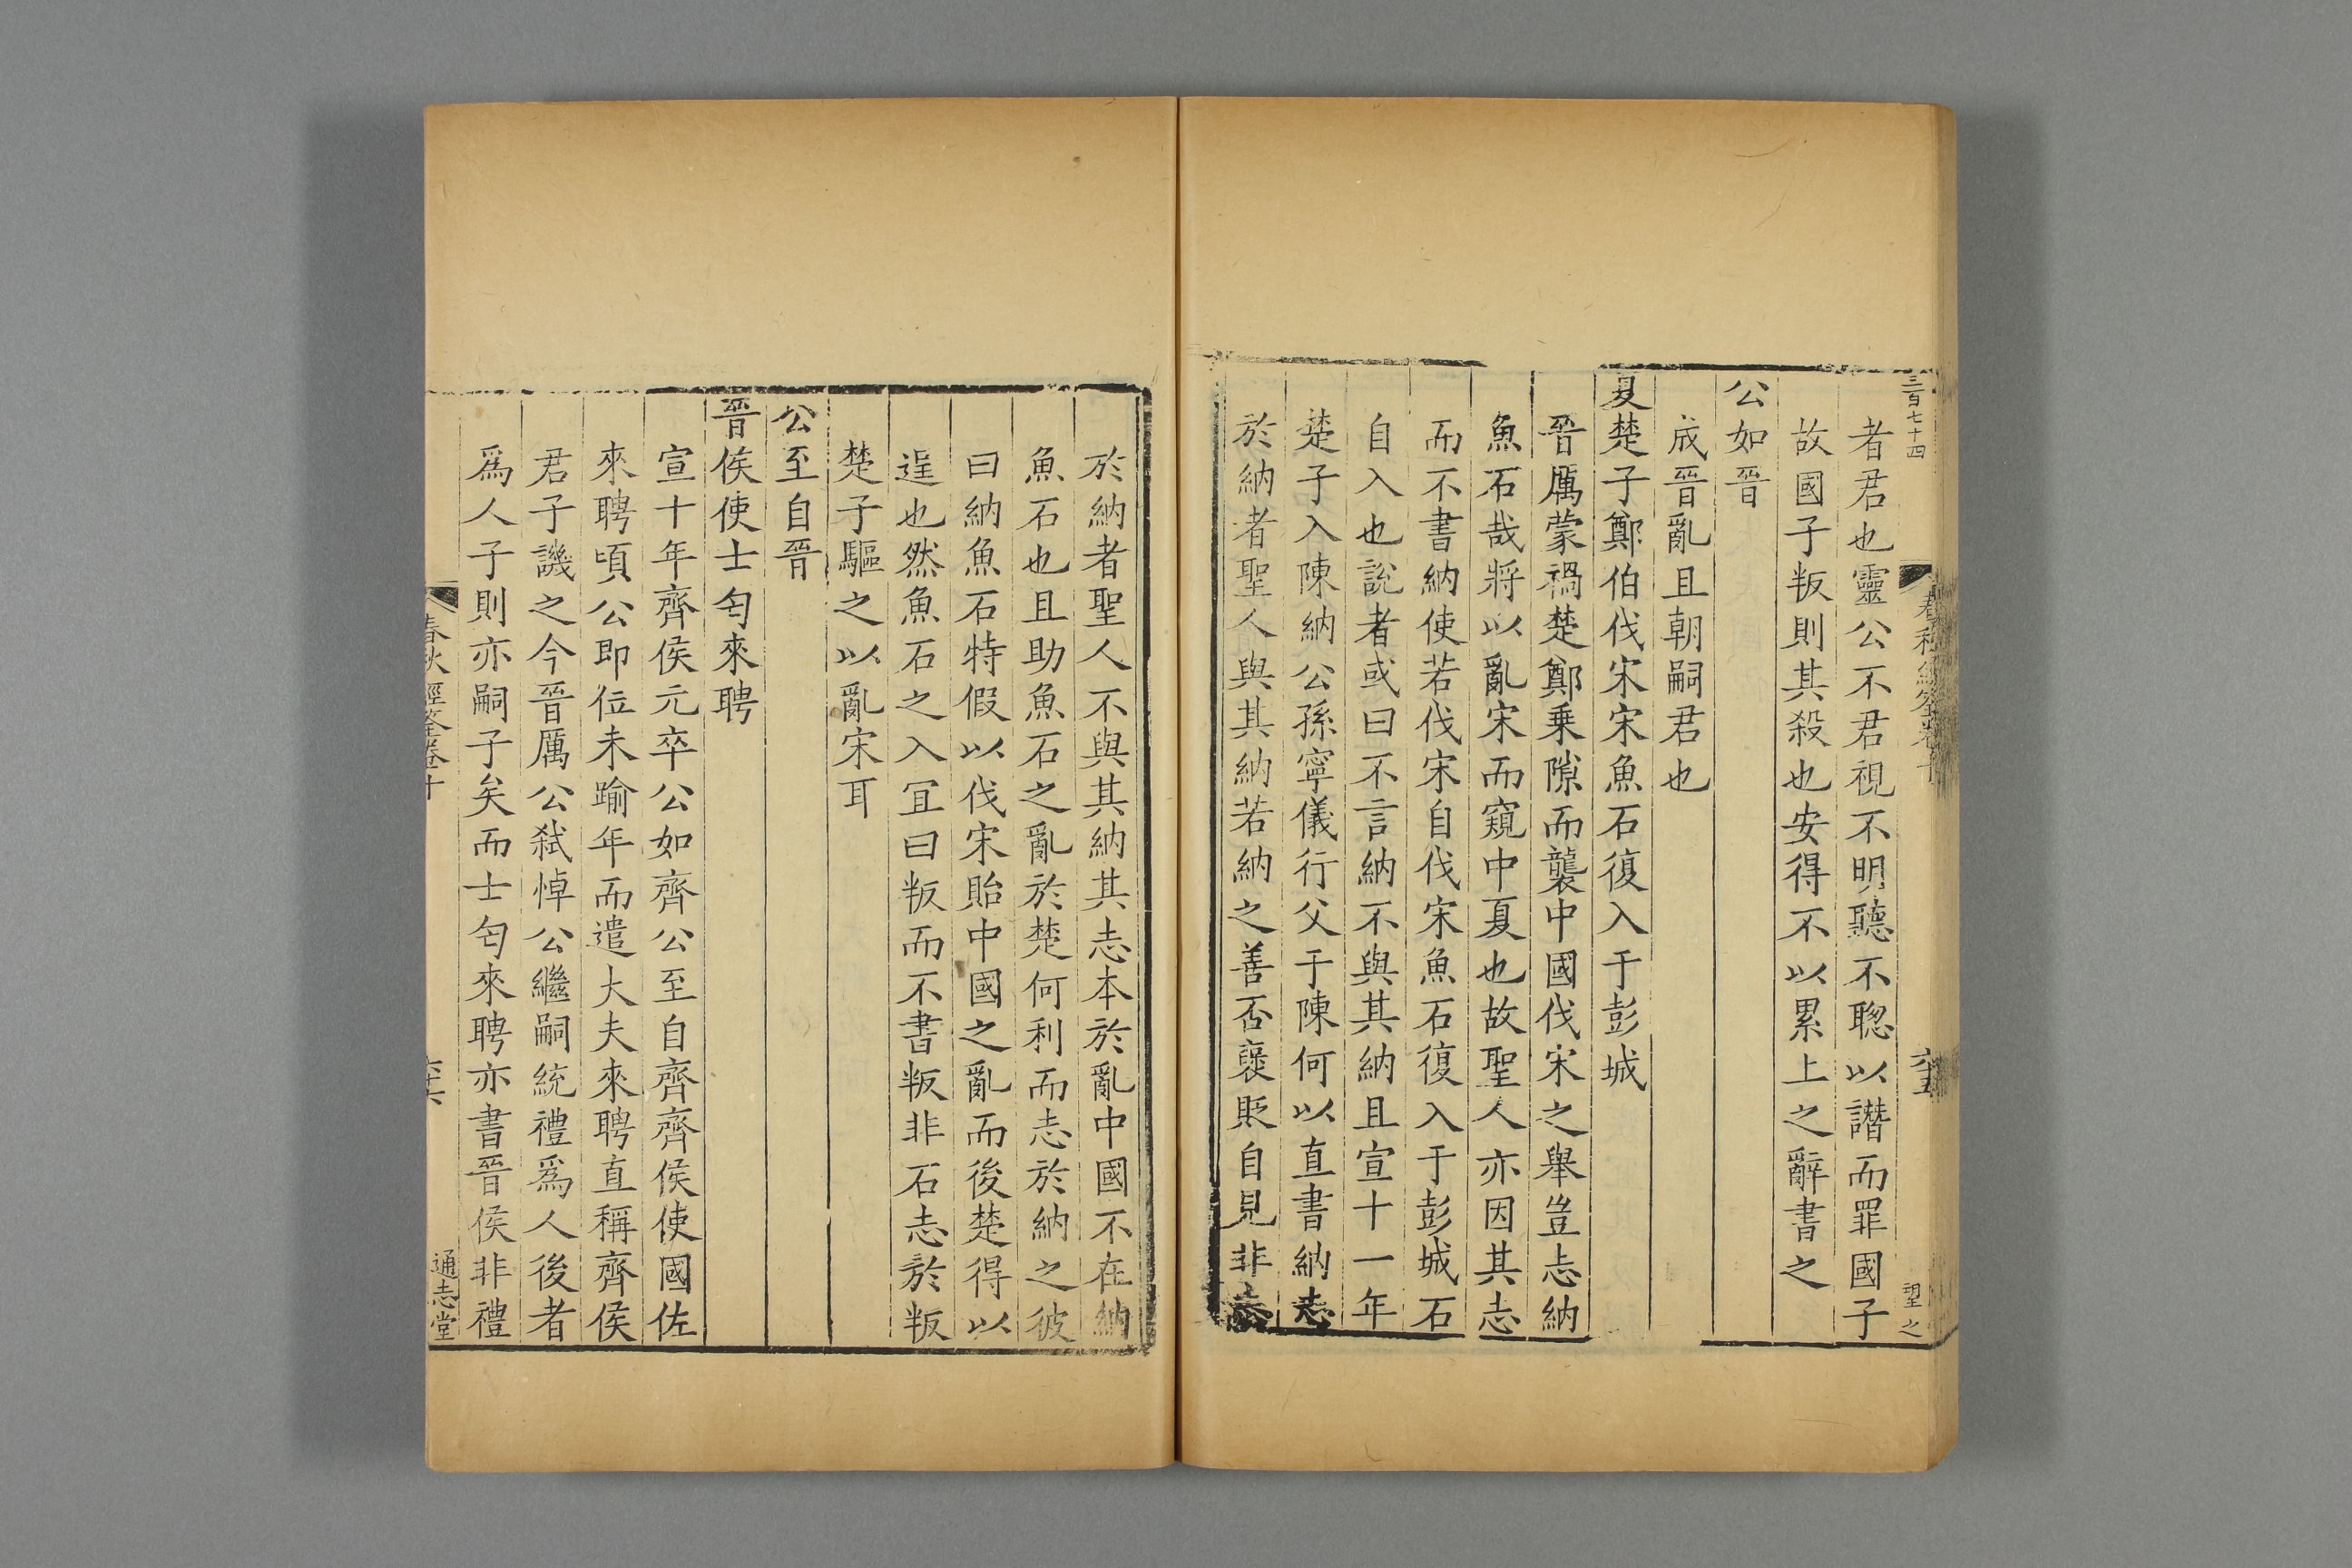 三百七十四
者君也靈公不君視不明聽不聦以譖而罪國子
故國子叛則其殺也安得不以累上之辭書之
公如晉
成晉亂且朝嗣君也
夏楚子鄭伯伐宋宋魚石復入于彭城
晉厲蒙禍楚鄭乗隙而襲中國伐宋之舉豈志納
魚石哉將以亂宋而窺中夏也故聖人亦因其志
而不書納使若伐宋自伐宋魚石復入于彭城石
自入也說者或曰不言納不與其納且宣十一年
楚子入陳納公孫寧儀行父于陳何以直書納志
於納者聖人與其納若納之善否襃貶自見非
望之
於納者聖人不與其納其志本於亂中國不在納
魚石也且助魚石之亂於楚何利而志於納之彼
曰納魚石特假以伐宋貽中國之亂而後楚得以
逞也然魚石之入冝曰叛而不書叛非石志於叛
楚子驅之以亂宋耳
公至自晉
晉侯使士匄來聘
宣十年齊侯元卒公如齊公至自齊齊侯使國佐
來聘頃公即位未踰年而遣大夫來聘直稱齊侯
君子譏之今晉厲公弑悼公繼嗣統禮爲人後者
爲人子則亦嗣子矣而士匄來聘亦書晉侯非禮
春秋經筌卷十
通志堂